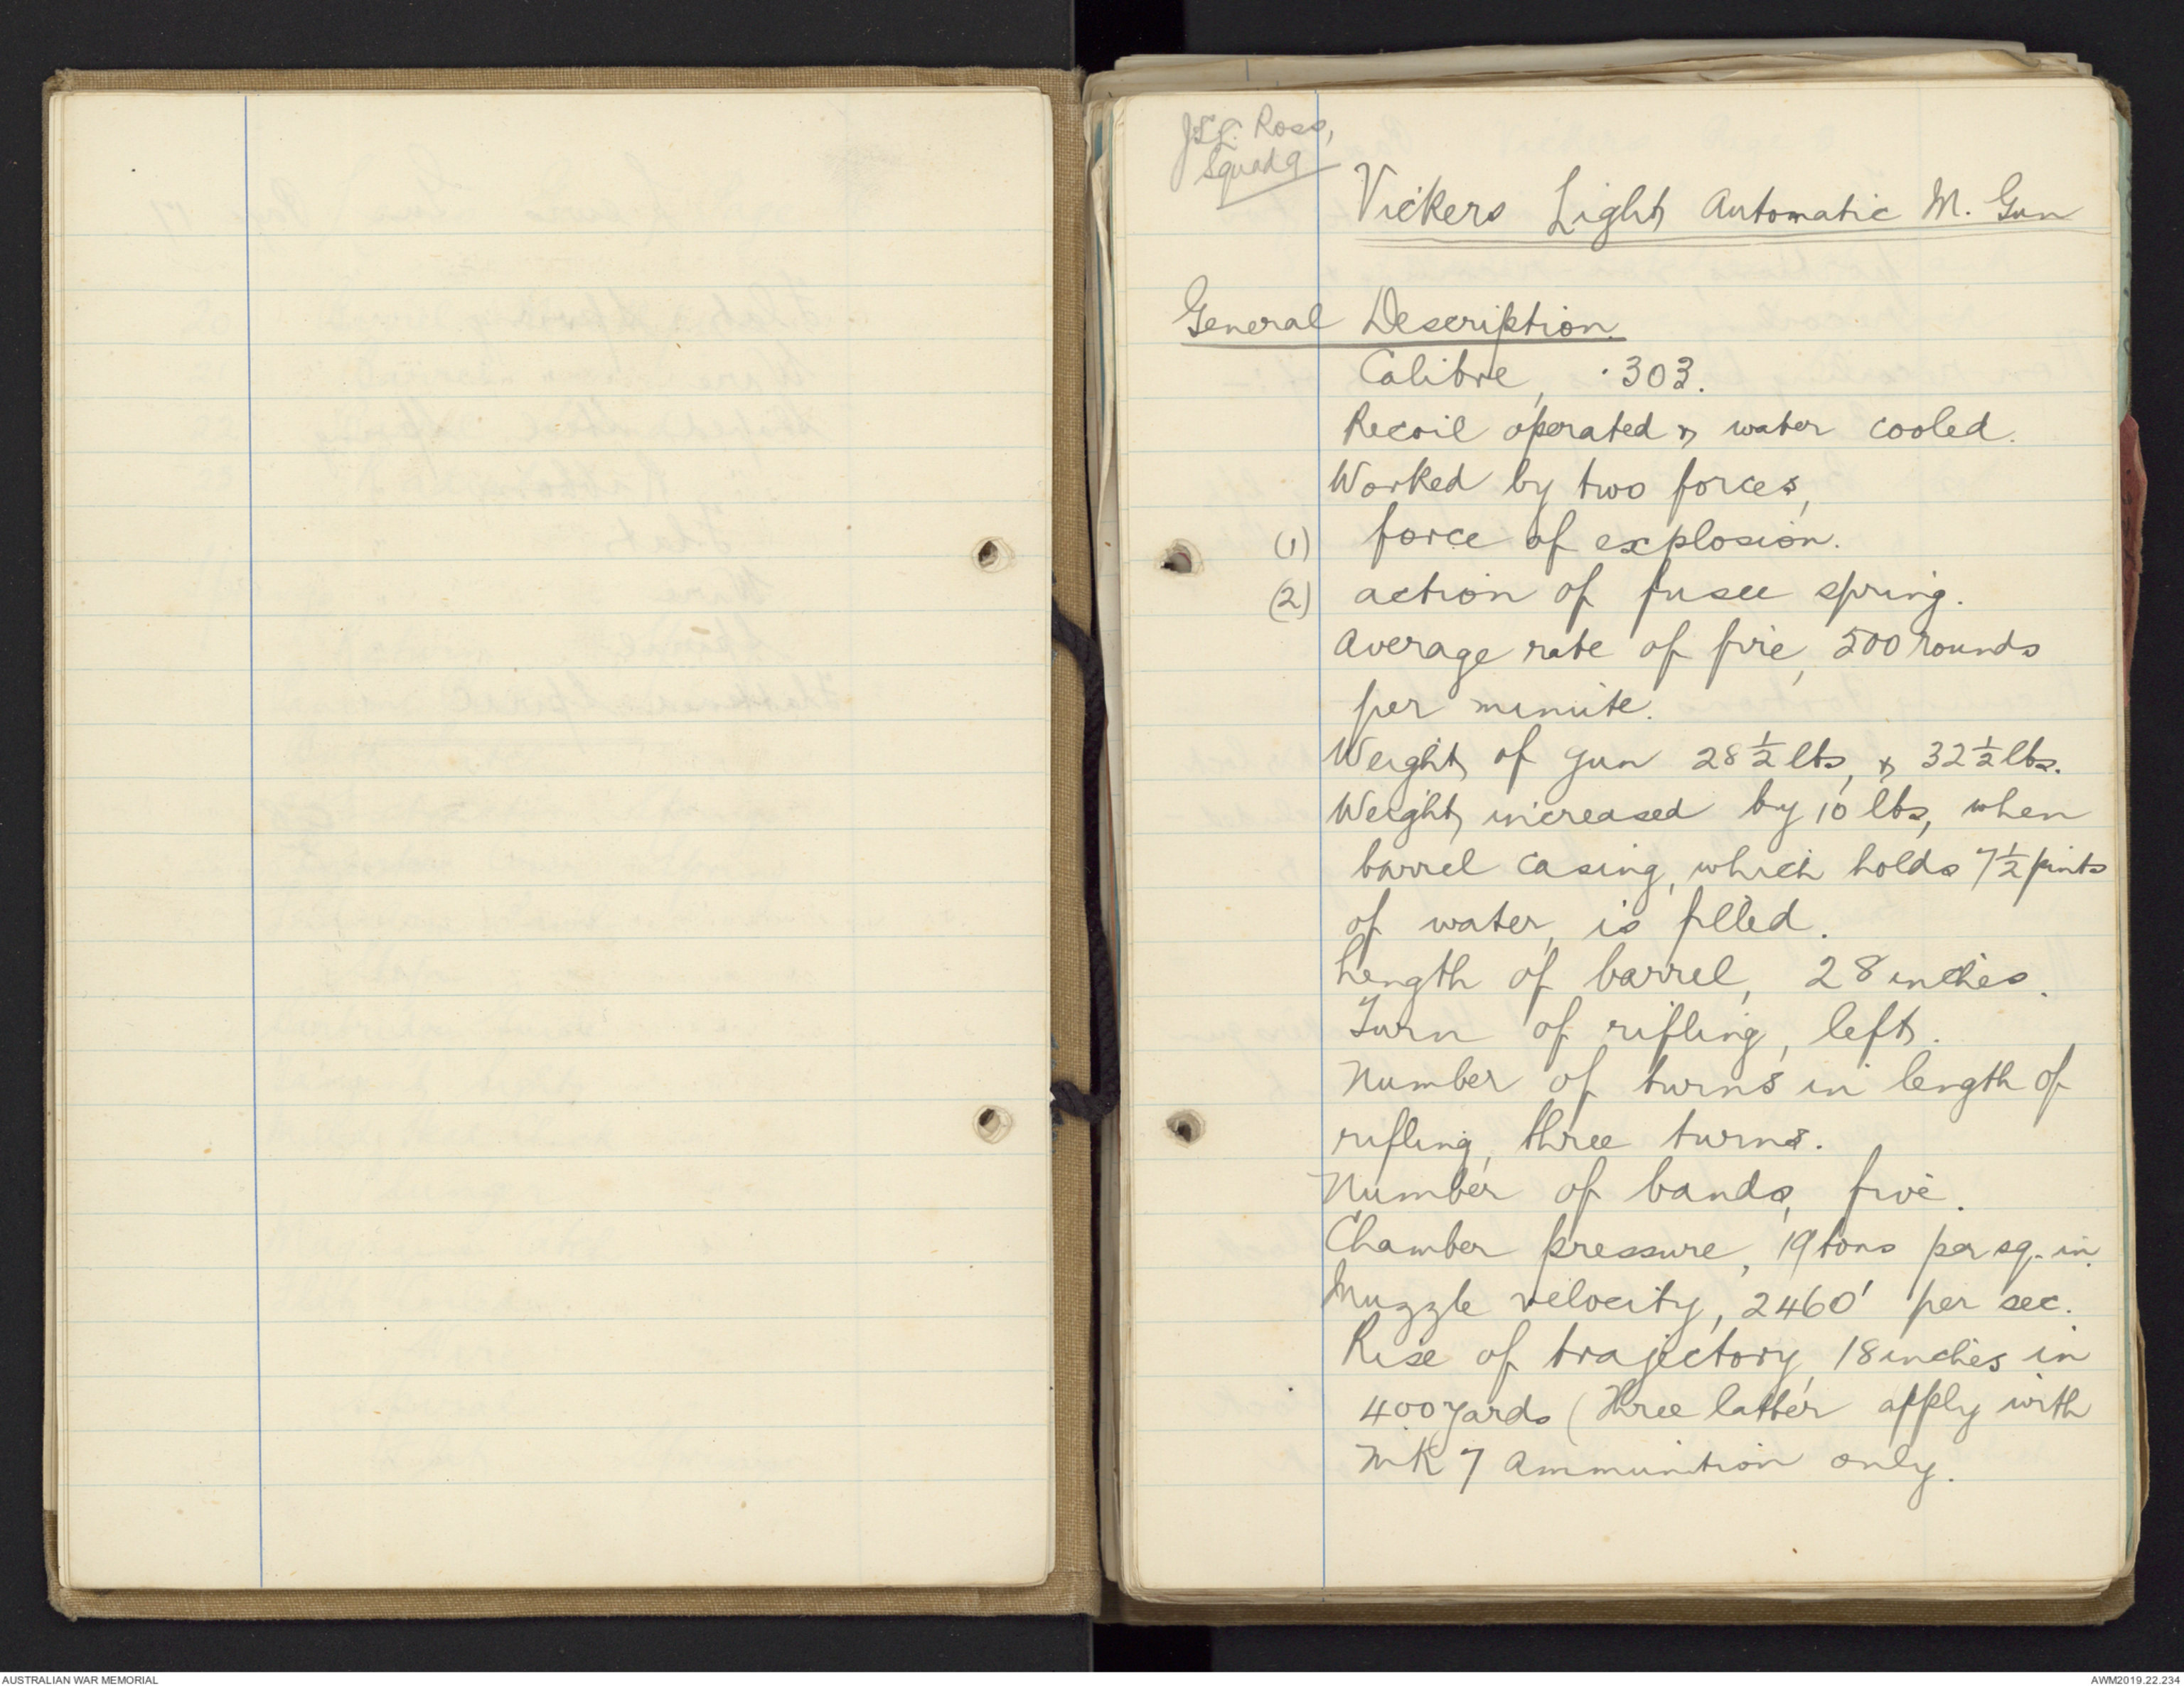 J.L. Ross,
Squad 9
Vickers Light Automatic M. Gun
General Description.
Calibre, ·303.
Recoil operated & water cooled.
Worked by two forces,
(1) force of explosion.
(2) action of fusee spring.
Average rate of fire, 500 rounds
per minute.
Weight of gun 28½ lbs, & 32½ lbs.
Weight increased by 10 lbs, when
barrel casing, which holds 7½ pints
of water, is filled.
Length of barrel, 28 inches.
Turn of rifling, left.
Number of turns in length of
rifling, three turns.
Number of bands, five.
Chamber pressure, 19 tons per sq. in.
Muzzle velocity, 2460' per sec.
Rise of trajectory, 18 inches in
400 yards (Three latter apply with
MK 7 Ammunition only.
AUSTRALIAN WAR MEMORIAL
AWM2019.22.234